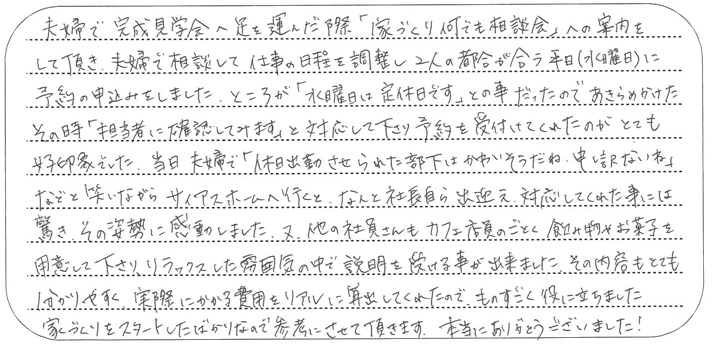 夫婦で完成見学会へ足を運んだ際「家づくり何でも相談会」への案内を
して頂き、夫婦で相談して仕事の日程を調整し2人の都合が合う平日(水曜日)に
予約の申込みをしました。ところが「水曜日は定休日です」との事だったのであきらめかけた
その時「担当者に確認してみます」と対応して下さり予約を受付けてくれたのがとても
好印象でした。当日夫婦で「休日出勤させられた部下はかわいそうだね。申し訳ないね」
などと笑いながらサイアスホームへ行くと、なんと社長自ら出迎え、対応してくれた事には
驚き、その姿勢に感動しました。又、他の社員さんもカフェ店員のごとく飲み物やお菓子を
用意して下さり、リラックスした雰囲気の中で説明を受ける事が出来ました。その内容もとても
分かりやすく、実際にかかる費用をリアルに算出してくれたので、ものすごく役に立ちました
家づくりをスタートしたばかりなので参考にさせて頂きます。本当にありがとうございました!